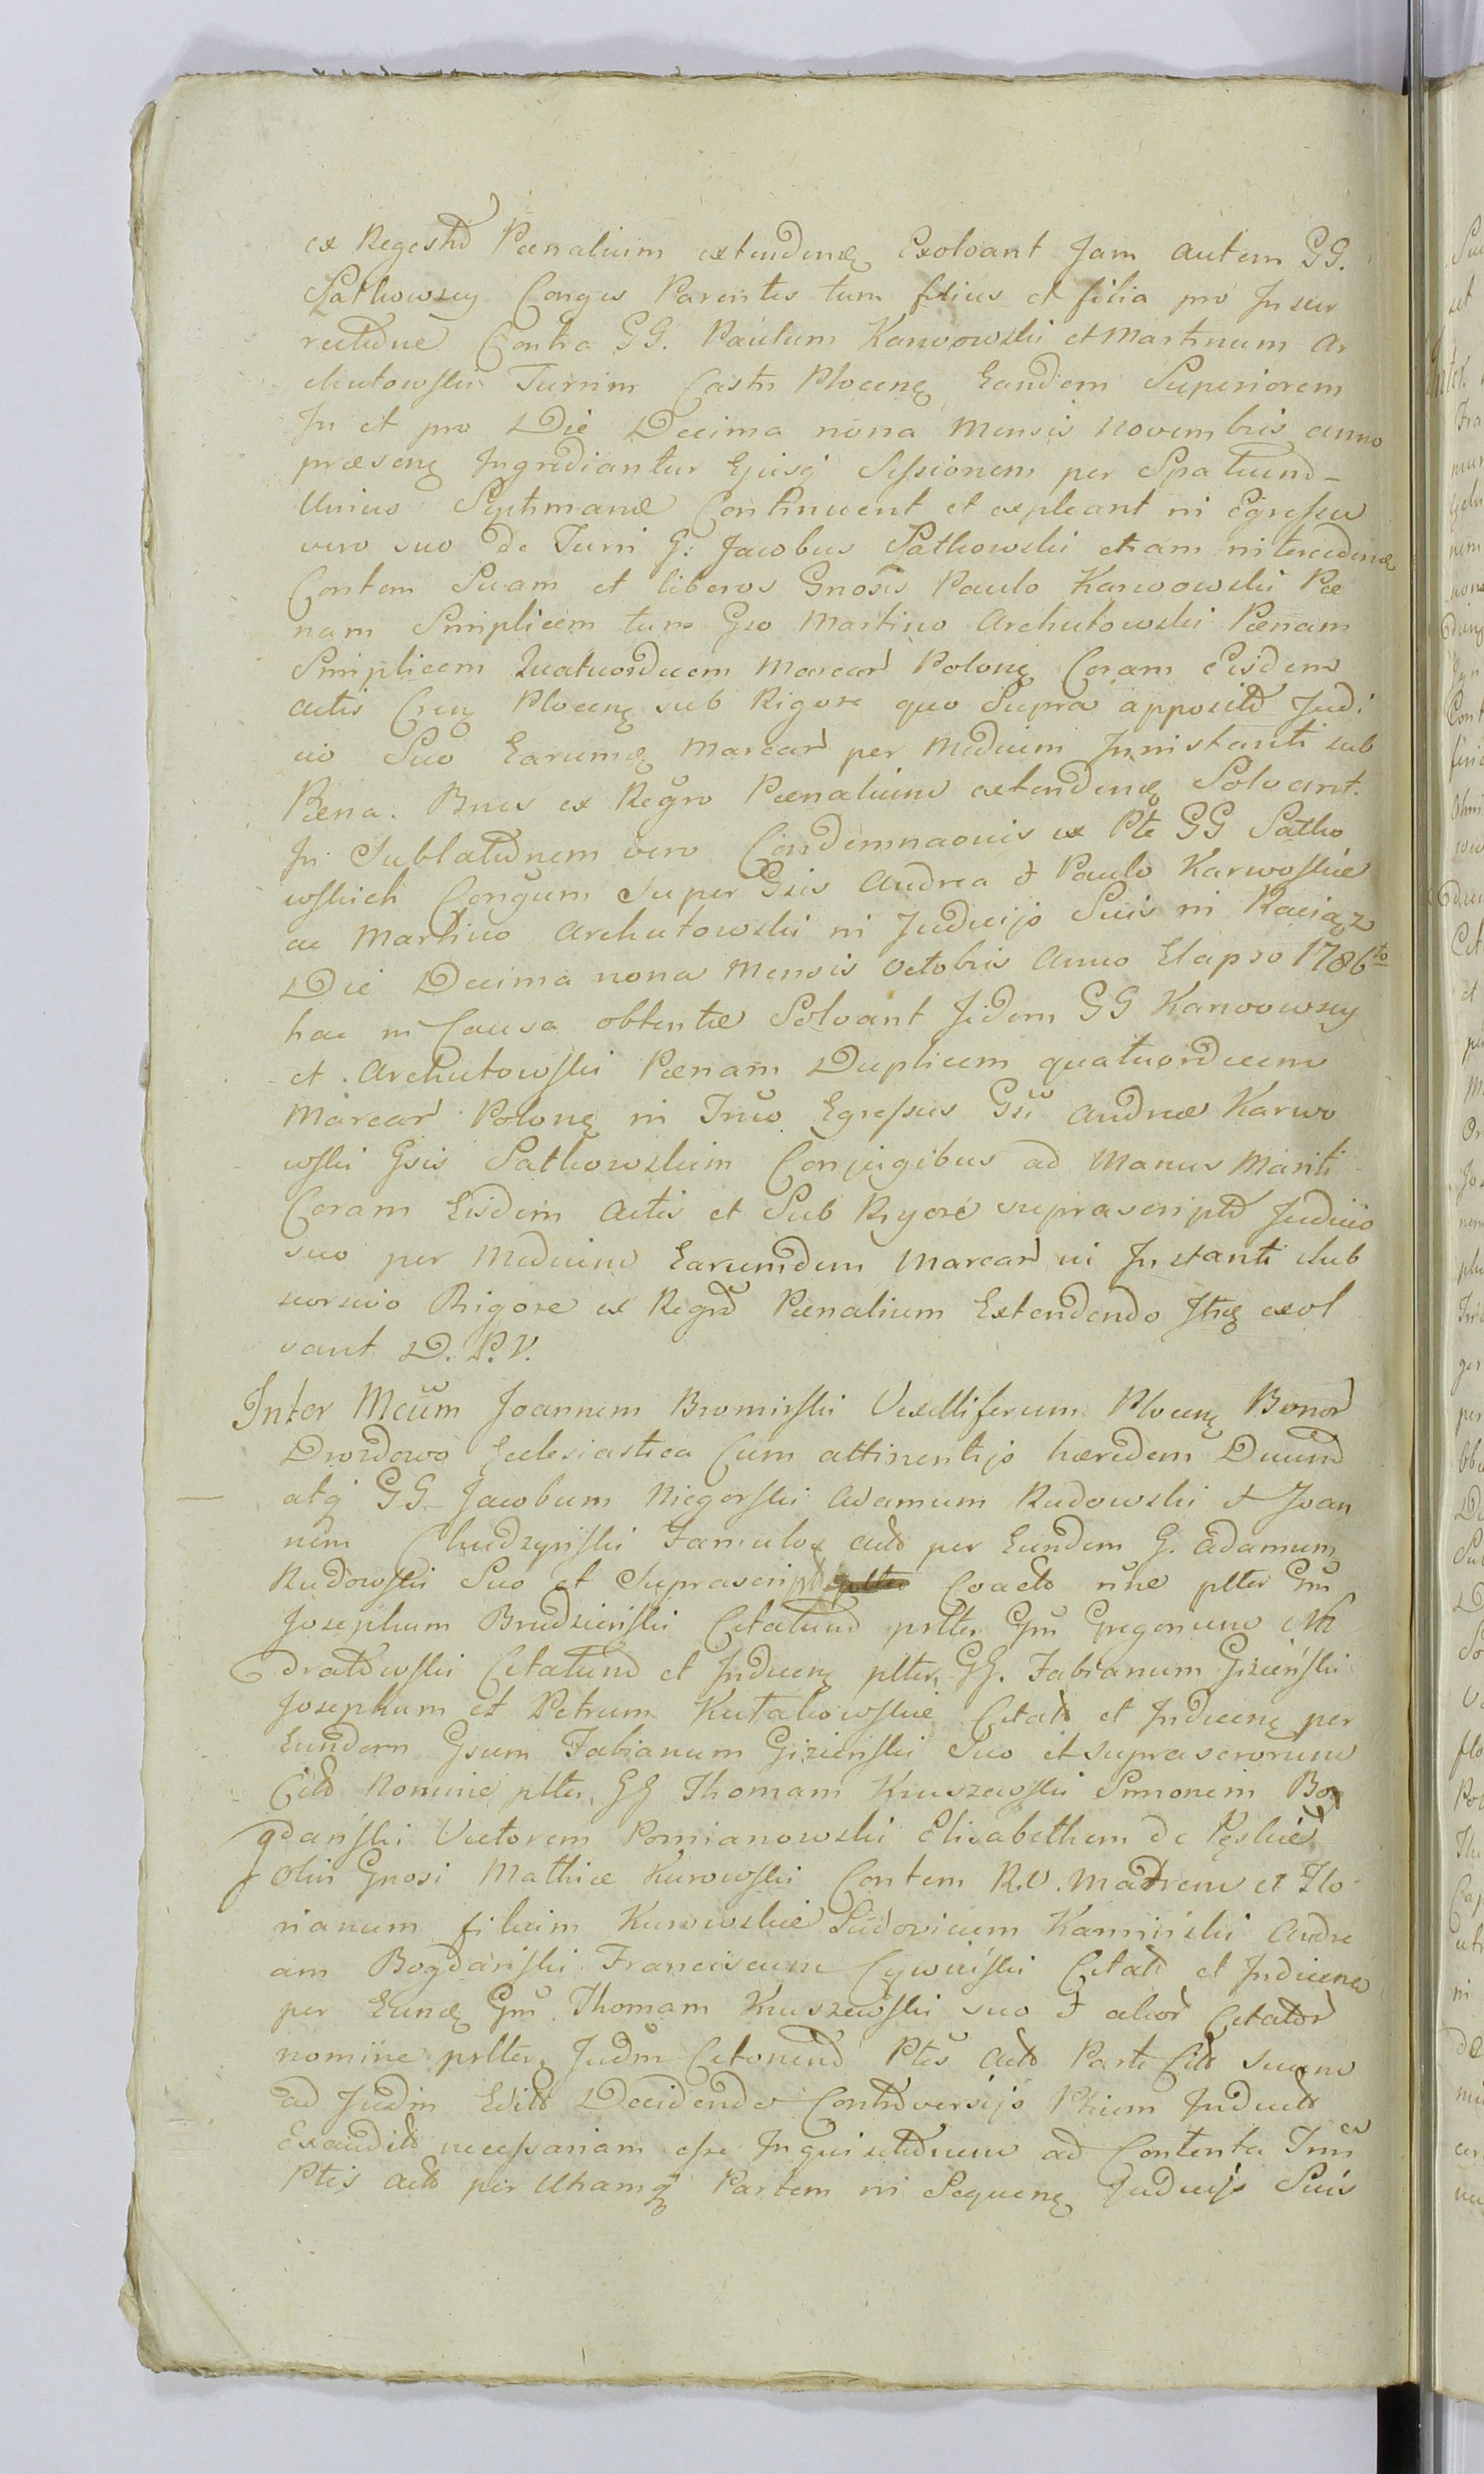 ex Regestro Pœnalium extendenę Exolvant Jam autem GG.
Satkowscy Conges Parentes tum filius et filia pro Insur
rectione Contra GG. Paulum Karwowski et Martinum Ar
chutowski Turrim Castri Plocenę Eandem Superiorem
In et pro Die Decima nona Mensis Novembris anno
præsenę Ingrediantur Ejusq Sessionem per Spatium
Unius Septimanæ Continuent et expleant in Egressu
vero suo de Turri G: Jacobus Satkowski etiam intercedenę
Contem Suam et liberos Gnosis Paulo Karwowski Pœ
nam Simplicem tum Gso Martino Archutowski Pœnam
Simplicem Quatuordecem Marcar Polonę Coram Eisdem
actis Crenę Plocenę sub Rigore quo Supra apposito Judi
cio Suo Earumę Marcar per Medium Innistanti sub
Pœna. Bnes ex Regro Pœnalium extendenę Solvant.
In Sublationem vero Condemnaonis ex Pte GG Satko
wskich Congum super Gsis Andrea et Paulo Karwoskie
ac Martino Archutowski in Judicijs Suis in Raciąz
Die Decima nona Mensis Octobris Anno Elapso 1786to
hac in Causa obtentæ Solvant Iidem GG Karwowscy
et Archutowski Pœnam Duplicem quatuordecem
Marcar Polonę in Truo Egressus Gsi Andreæ Karwo
wski Gsis Satkowskim Conjugibus ad Manus Mariti
Coram Eisdem Actis et Sub Rigore suprascripto Judicio
suo per Medium Earumdem Marcar in Instanti Sub
Rigore ex Regro Pœnalium Extendendo Itnę exol
vant D. P. V.
Inter Mcum Joannem Bromirski Vexilliferum Plocenę Bonor
Drozdowo Ecclesiastica Cum attinentijs hæredem Ducum
atq GG Jacobum Niegorski Adamum Rudowski et Joan
nem Chudzynski Famulos acto per Eundem G. Adamum
Rudowski Suo et Suprascripto Coacto nne plter Gm
Josephum Brudzieński Citatum prlter Gm Gregorium
Citatum et Inducenę plter GG. Fabianum Gizieński
Josephum et Petrum Kutakowskie Citato et Inducenę per
Eundem Gsum Fabianum Gizieński Suo et supraserorum
Cito Nomine plter GG Thomam Kruszewski Simonem Bo
gdański Victorem Pomianowski Elisabethem de Pęskie
Olim Gnosi Mathiæ Kurowski Contem R.V. Matrem et Flo
rianum filium Kurowskie Ludovicum Kamiński Andre
am Bogdański Franciscum Cywiński Citato et Inducenę
per Eunę Gm Thomam Kruszewski suo et alior Citator
nomine prlter Judm Citonum Ptes acto Parte Cito suum
ad Judm Edito Decidendo Controversijs Ptium Inducto
Exaudito necessariam esse Inquisitionem ad Contenta
Ptis acto per Utramq Partem in Sequenę Judicijs Suis